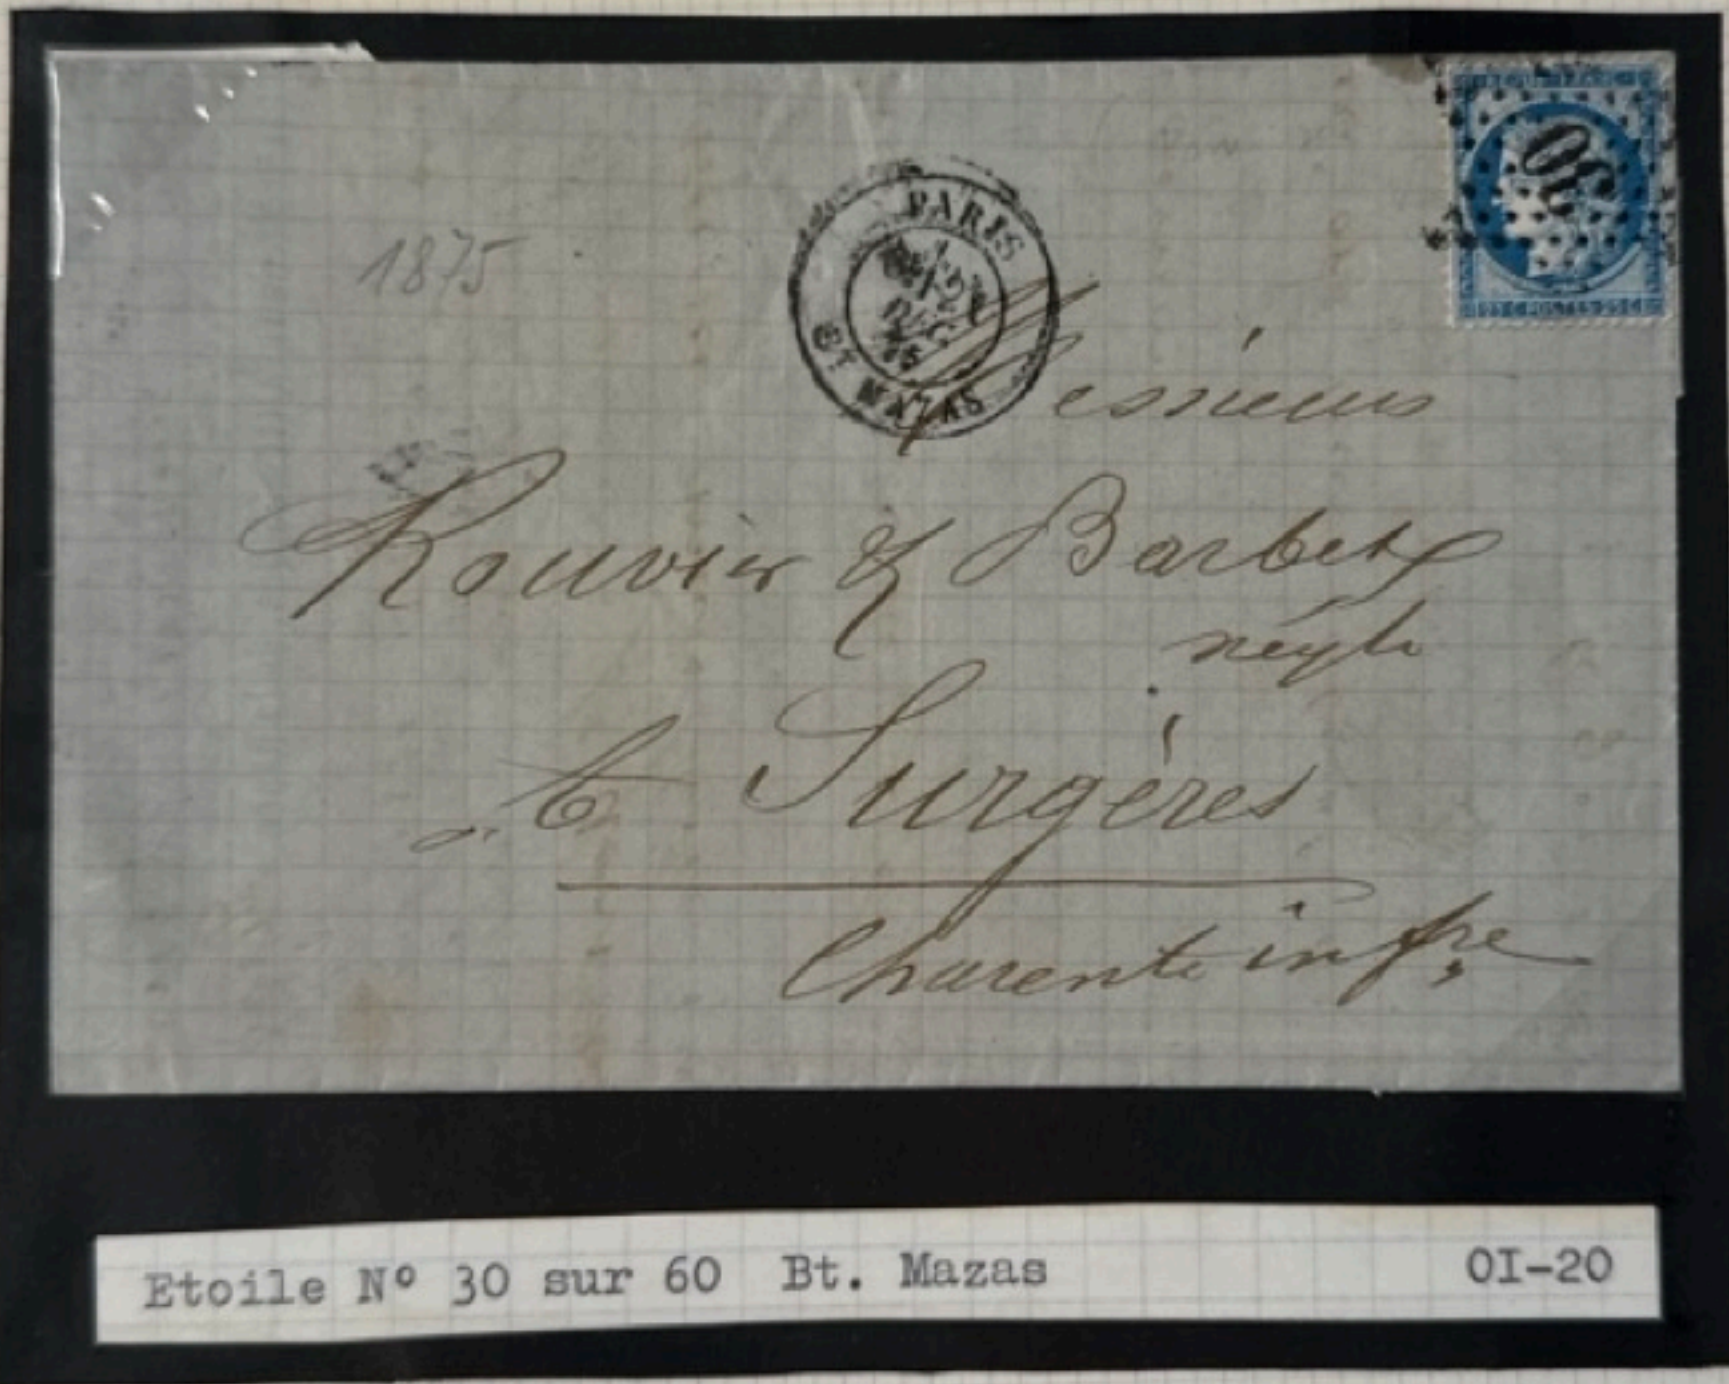 30
25 C POSTES 25 C
PARIS
DEC
75
BT MAZAS
1875
Messieurs
Rouvier & Barbet
négts
à Surgères
Charente infre
Etoile Nº 30 sur 60 Bt. Mazas OI-20